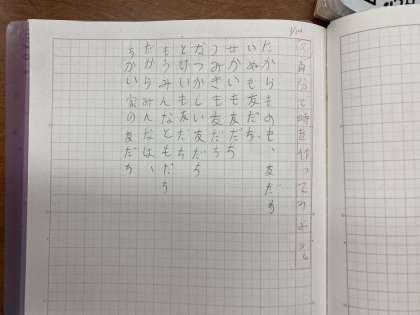 1/14
自分で時を作ってみよう
たからものも、友だち
いぬも友だち、
せかいも友だち
うみさえも友だち
なつかしい友だち
とけいも友だち
もうみんなともだち
だからみんなは、
ちがい家の友だち